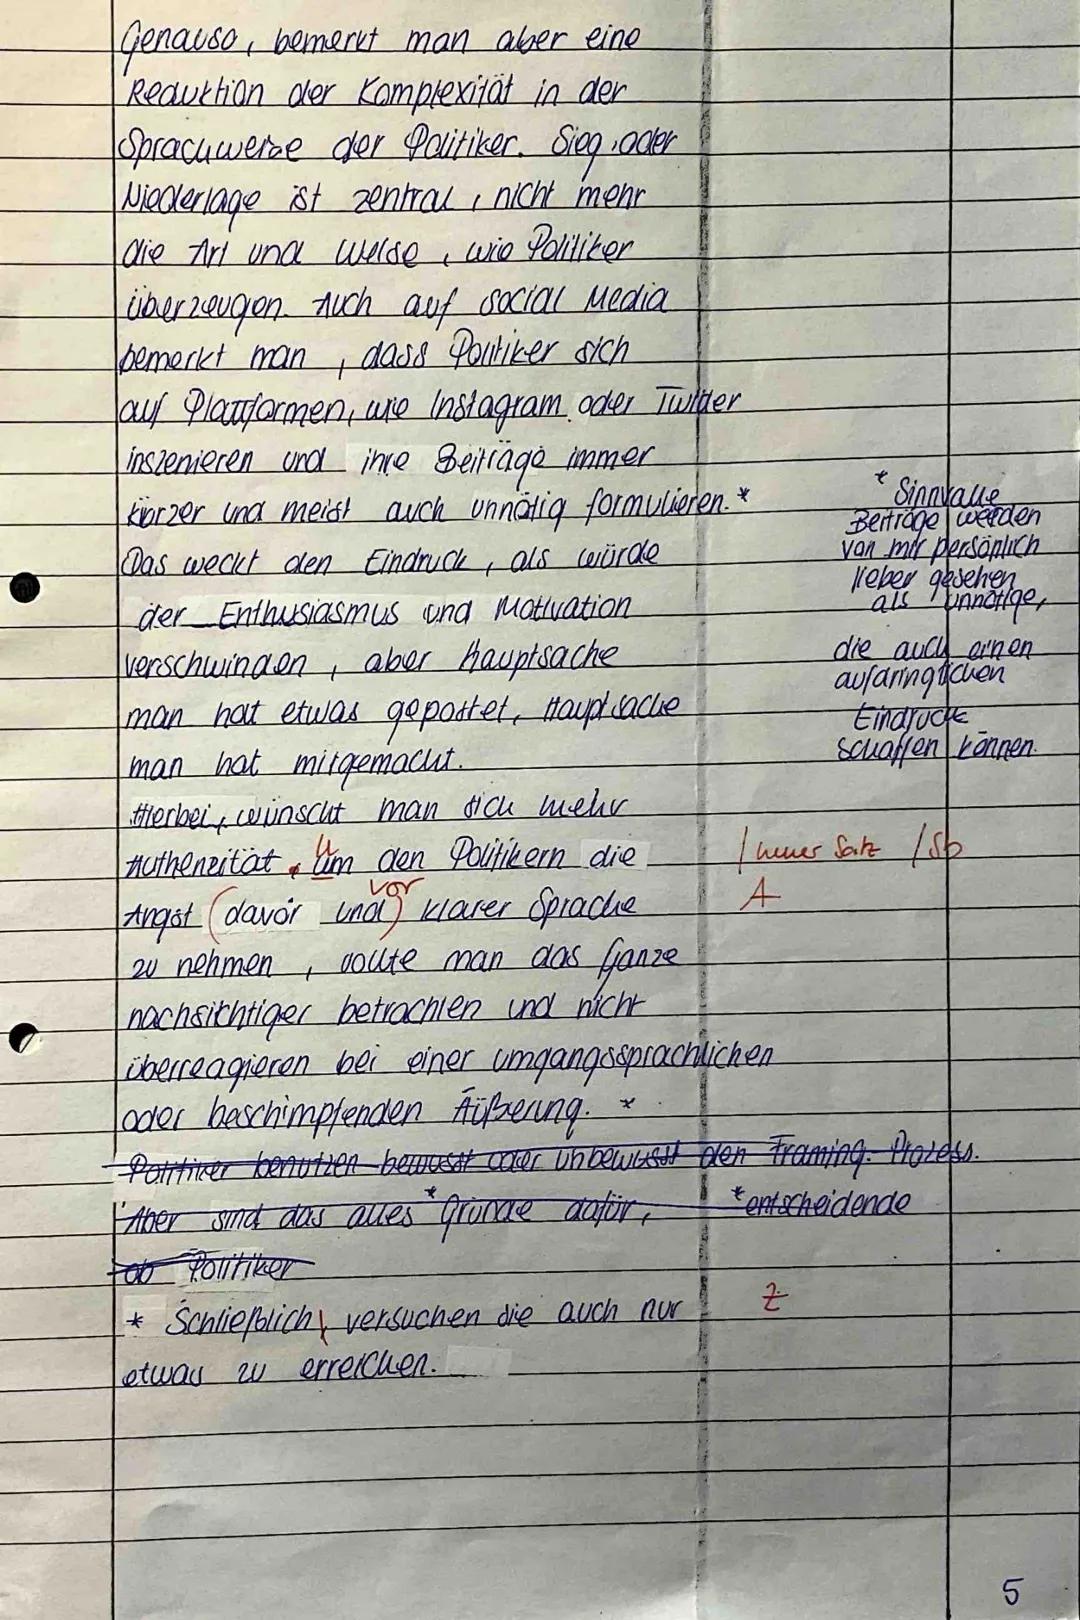 Genauso, bemerkt man aber eine
Reduktion der Komplexität in der
Sprachweise der Politiker. Sieg oder
Niederlage ist zentral, nicht mehr
die Art und Weise, wie Politiker
überzeugen. Auch auf social Media
bemerkt man, dass Politiker sich
auf Plattformen, wie Instagram oder Twitter
inszenieren und ihre Beiträge immer
kürzer und meist auch unnötig formulieren. *
* Sinnvolle
Beiträge werden
von mir persönlich
lieber gesehen
als unnötige,
die auch einen
aufdringlichen
Eindruck
schaffen können.
Das weckt den Eindruck, als würde
der Enthusiasmus und Motivation
verschwinden, aber Hauptsache
man hat etwas gepostet, Hauptsache
man hat mitgemacht.
Hierbei, wünscht man sich mehr
Authenzität. Um den Politikern die | neuer Satz /Sb
Angst (davor und) vor klarer Sprache A
zu nehmen, sollte man das Ganze
nachsichtiger betrachten und nicht
überreagieren bei einer umgangssprachlichen
oder beschimpfenden Äußerung. *
Politiker benutzen bewusst oder unbewusst den Framing-Prozess.
Aber sind das alles * Gründe dafür, * entscheidende
ob Politiker
* Schließlich, versuchen die auch nur Z
etwas zu erreichen.
5